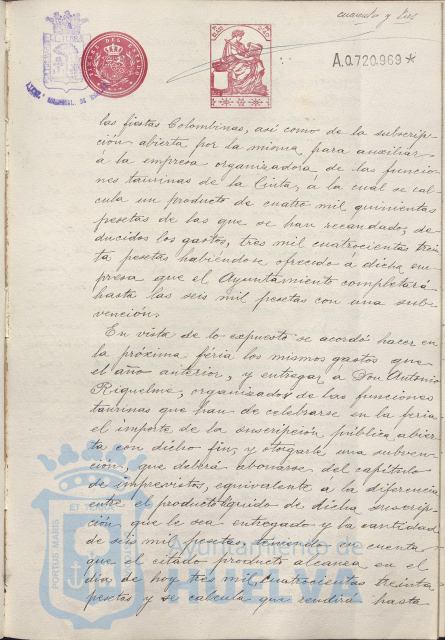 cuarenta y tres
A.0.720.969*
las fiestas Colombinas, así como de la subscrip-
ción abierta por la misma para auxiliar
á la empresa organizadora de las funcio-
nes taurinas de la Cinta, á la cuál se cal-
cula un producto de cuatro mil quinientas
pesetas de las que se han recaudado, de-
ducidos los gastos, tres mil cuatrocientas trein-
ta pesetas habiéndose ofrecido á dicha em-
presa que el Ayuntamiento completará
hasta las seis mil pesetas con una sub-
vención.
En vista de lo expuesto se acordó hacer en
la próxima feria los mismos gastos que
el año anterior, y entregar á Don Antonio
Riquelme, organizador de las funciones
taurinas que han de celebrarse en la feria
el importe de la suscripción pública abier-
ta con dicho fin, y otorgarle una subven-
ción, que deberá abonarse del capítulo
de imprevistos, equivalente á la diferencia
entre el producto líquido de dicha suscrip-
ción que le sea entregado y la cantidad
de seis mil pesetas, teniendo en cuenta
que el citado producto alcanza en el
día de hoy tres mil cuatrocientas treinta
pesetas y se calcula que rendirá hasta
PORTUS MARIS
Ayuntamiento de
HUELVA